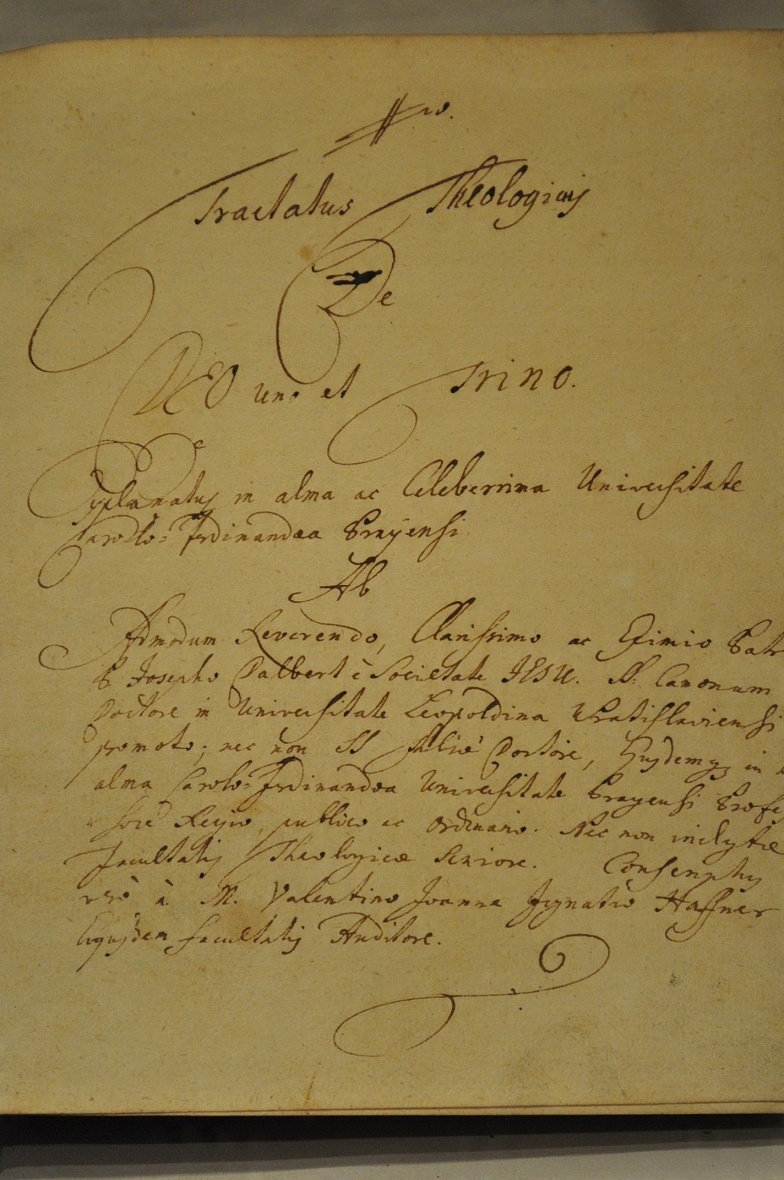 Tractatus Theologicus
De
DEO uno et Trino.
Explanatus in alma ac Celeberrima Universitate
Carolo=Ferdinandea Pragensi
Ab
Admodum Reverendo, Clarissimo ac Eximio Patr
P. Josepho Dalbert è Societate JESU. SS. Canonum
Doctore in Universitate Leopoldina Wratislaviensi
promoto; nec non SS Doctore, in
alma Carolo=Ferdinandea Universitate Pragensi Profes
sore Regio, publico ac Ordinario. Nec non inclytæ
Facultatis Theologicæ Seniore. Conscriptus
verò à M. Valentino Joanne Ignatio Haffner
Ejusdem facultatis Auditore.